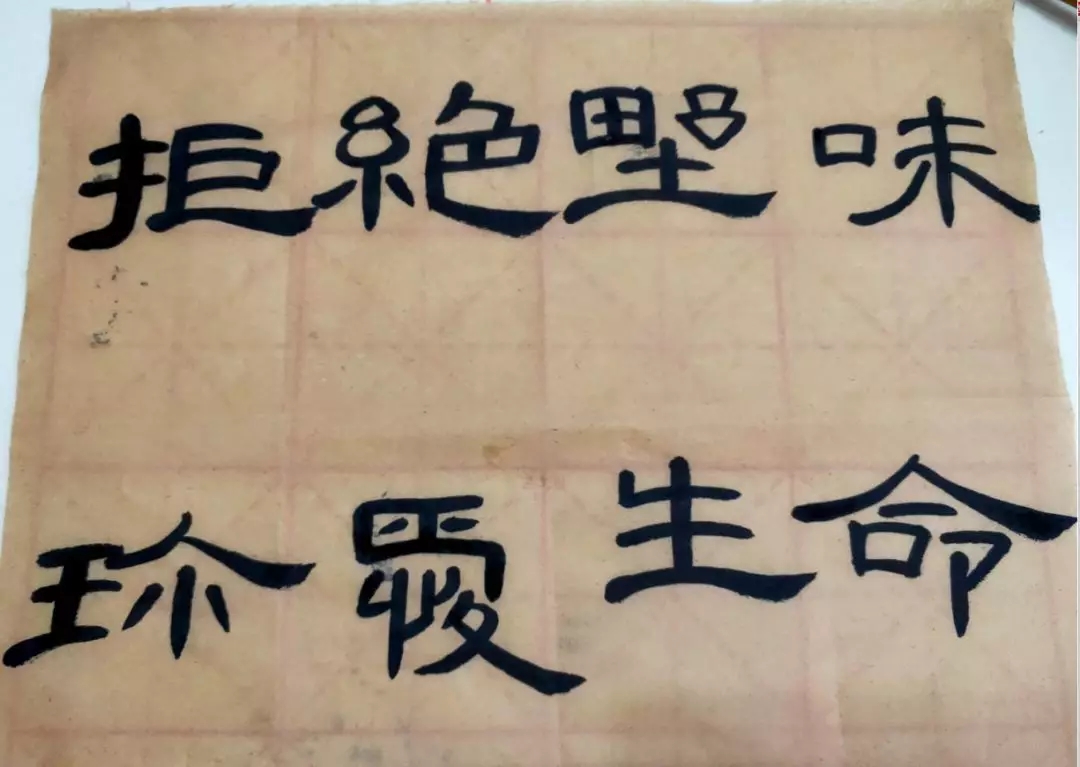 拒絶野味
珍愛生命